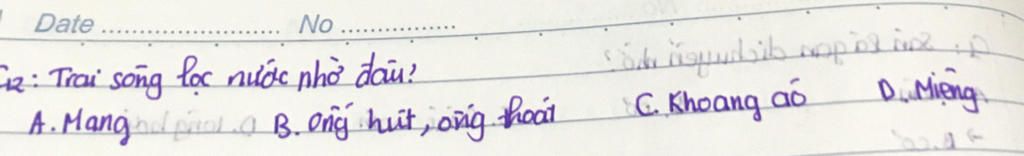 Date .................... No ....................
C12: Trai sông lọc nước nhờ đâu?
A. Mang B. Ống hút, ống thoát C. Khoang áo D. Miệng